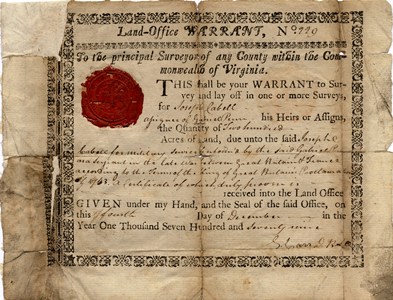 Land-Office WARRANT, No 9990
To the principal Surveyor of any County within the Com-
monwealth of Virginia.
THIS shall be your WARRANT to Sur-
vey and lay off in one or more Surveys,
for Joseph Cabell
assignee of Gabriel Penn his Heirs or Assigns,
the Quantity of Two hundred
Acres of Land, due unto the said Joseph
Cabell for military service performed by the said Gabriel
as a sergeant in the late War between Great Britain & France
according to the Terms of the King of Great Britain's Proclamation
of 1763 a Certificate of which duly proven is
received into the Land Office
GIVEN under my Hand, and the Seal of the said Office, on
this fourth Day of December in the
Year One Thousand Seven Hundred and Seventy nine